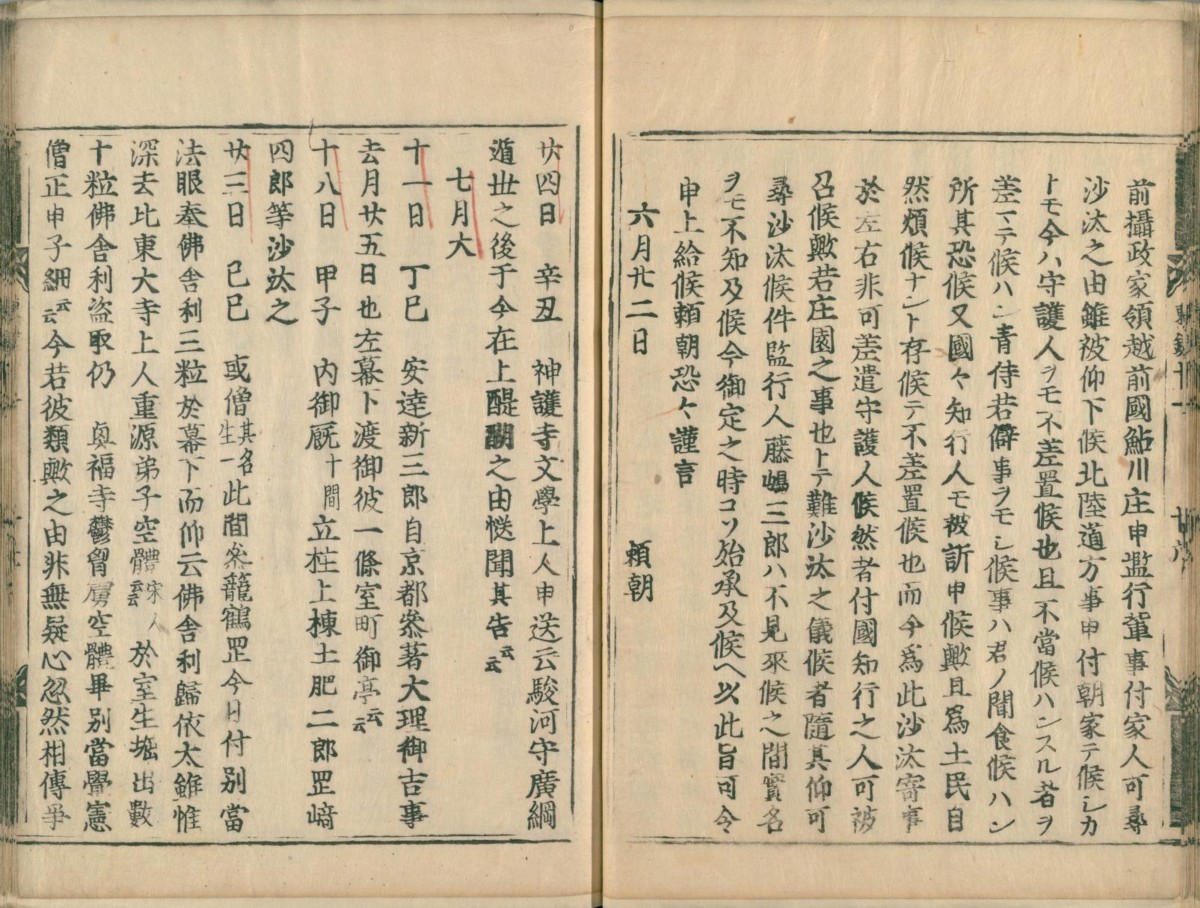 前攝政家領越前國鮎川庄申濫行輩事付家人可尋
沙汰之由雖被仰下候北陸道方事申付朝家テ候シカ
トモ今ハ守護人ヲモ不差置候也且不當候ハンスル者ヲ
差マテ候ハン青侍若僻事ヲモシ候事ハ君ノ聞食候ハン
所其恐候又國々知行人モ被訴申候歟且爲土民自
然煩候ナント存候テ不差置候也而今爲此沙汰寄事
於左右非可差遣守護人候然者付國知行之人可被
召候歟若庄園之事也トテ難沙汰之儀候者隨其仰可
尋沙汰候件監行人藤嶋三郎ハ不見來候之間實名
ヲモ不知及候今御定之時コソ始承及候ヘ以此旨可令
申上給候頼朝恐々謹言
六月廿二日 頼朝
廿四日 辛丑 神護寺文學上人申送云駿河守廣綱
遁世之後于今在上醍醐之由慥聞其告云云
七月大
十一日 丁巳 安逹新三郎自京都叅著大理御吉事
去月廿五日也左幕下渡御彼一條室町御亭云云
十八日 甲子 内御厩十間立柱上棟土肥二郎罡﨑
四郎等沙汰之
廿三日 己巳 或僧其名生一此間叅籠鶴罡今日付別當
法眼奉佛舎利三粒於幕下而仰云佛舎利歸依太雖惟
深去比東大寺上人重源弟子空體宋人云云於室生堀出數
十粒佛舎利盗取仍 興福寺鬱留虜空體畢別當覺憲
僧正申子細云云今若彼類歟之由非無疑心忽然相傳爭